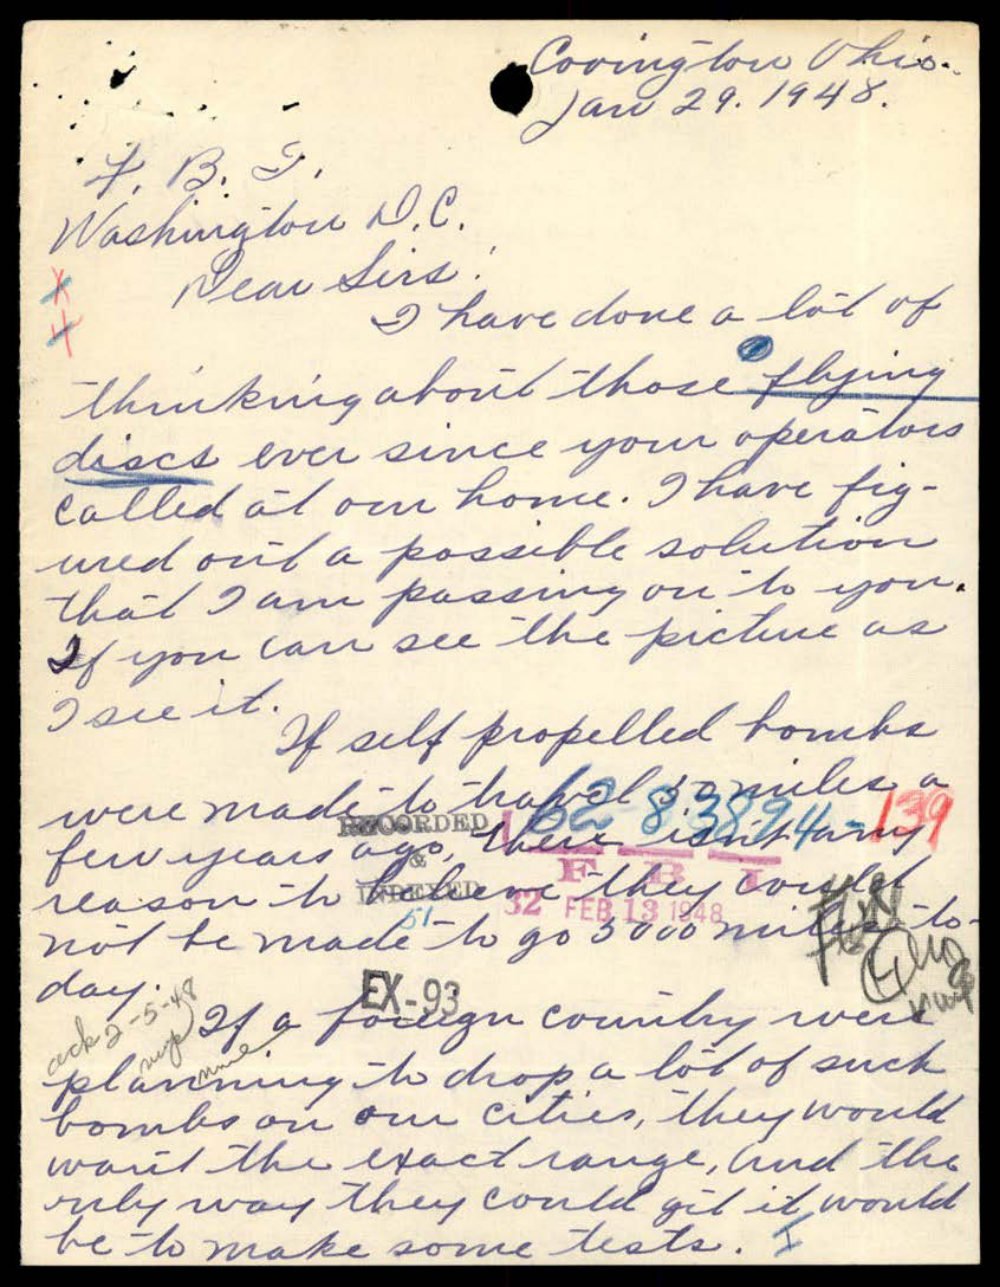 Covington Ohio.
Jan 29. 1948.
F. B. I.
Washington D.C.
Dear Sirs:
I have done a lot of
thinking about those flying
discs ever since your operators
called at our home. I have fig-
ured out a possible solution
that I am passing on to you.
If you can see the picture as
I see it.
If self propelled bombs
were made to travel 50 miles a
62-83894-139
RECORDED
few years ago, there isn't any
&
F B I
reason to believe they could
INDEXED
51
32 FEB 13 1948
not be made to go 3000 miles to-
day.
EX-93
ack 2-5-48
If a foreign country were
planning to drop a lot of such
bombs on our cities, they would
want the exact range, and the
only way they could git it would
be to make some tests.